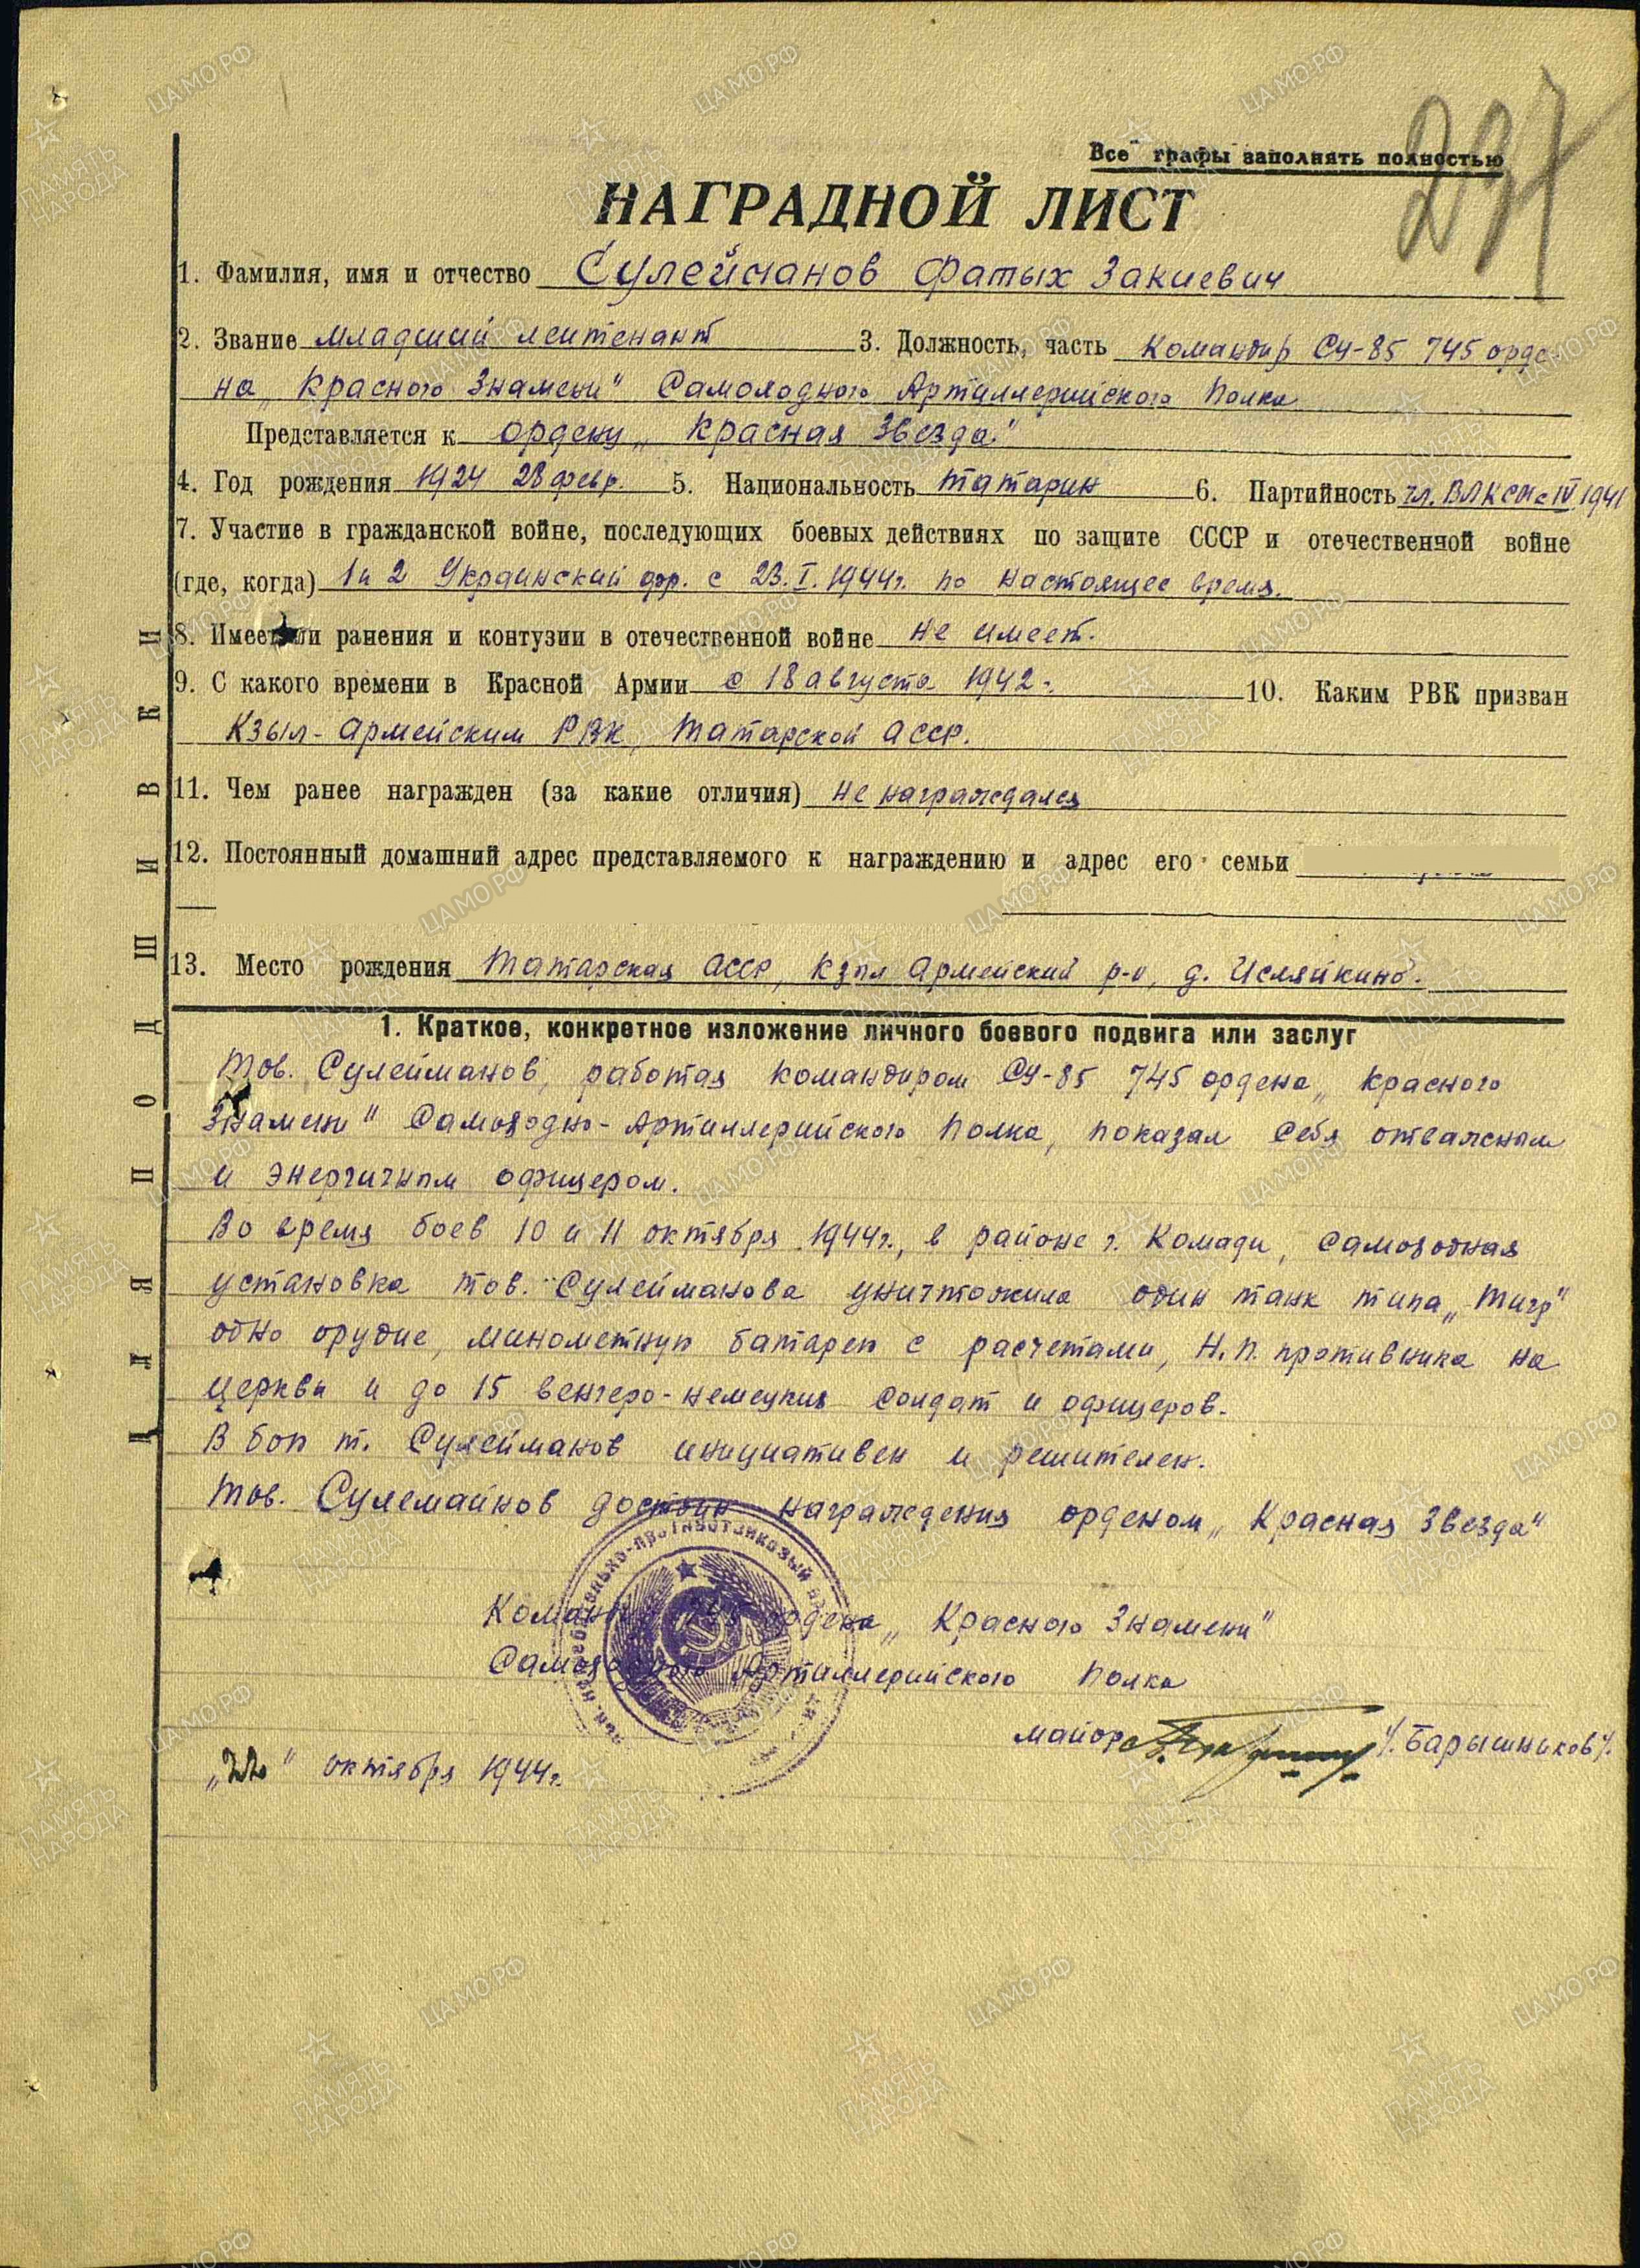 297
Все графы заполнять полностью
НАГРАДНОЙ ЛИСТ
1. Фамилия, имя и отчество Сулейманов Фатых Закиевич
2. Звание младший лейтенант 3. Должность, часть Командир СУ-85 745 орде-
на „Красного Знамени" Самоходного Артиллерийского Полка
Представляется к ордену „Красная Звезда."
4. Год рождения 1924 28 февр. 5. Национальность татарин 6. Партийность чл. ВЛКСМ с IV 1941
7. Участие в гражданской войне, последующих боевых действиях по защите СССР и отечественной войне
(где, когда) 1 и 2 Украинский фр. с 23.I.1944г. по настоящее время.
8. Имеет ли ранения и контузии в отечественной войне не имеет.
9. С какого времени в Красной Армии с 18 августа 1942. 10. Каким РВК призван
Кзыл-Армейским РВК, Татарской АССР.
11. Чем ранее награжден (за какие отличия) не награждался
12. Постоянный домашний адрес представляемого к награждению и адрес его семьи
13. Место рождения Татарская АССР, Кзыл Армейский р-н, д. Исляйкино.
ДЛЯ ПОДШИВКИ
1. Краткое, конкретное изложение личного боевого подвига или заслуг
Тов. Сулейманов, работая командиром СУ-85 745 ордена „Красного
Знамени" Самоходно-Артиллерийского Полка, показал себя отважным
и энергичным офицером.
Во время боев 10 и 11 октября 1944г., в районе г. Комади, самоходная
установка тов. Сулейманова уничтожила один танк типа „Тигр"
одно орудие, минометную батарею с расчетами, Н.П. противника на
церкви и до 15 венгеро-немецких солдат и офицеров.
В бою т. Сулейманов инициативен и решителен.
Тов. Сулемайнов достоин награждения орденом „Красная Звезда"
Командир 745 ордена „Красного Знамени"
Самоходного Артиллерийского Полка
майор /Барышников/.
„22" октября 1944г.
ПАМЯТЬ НАРОДА
ЦАМО.РФ